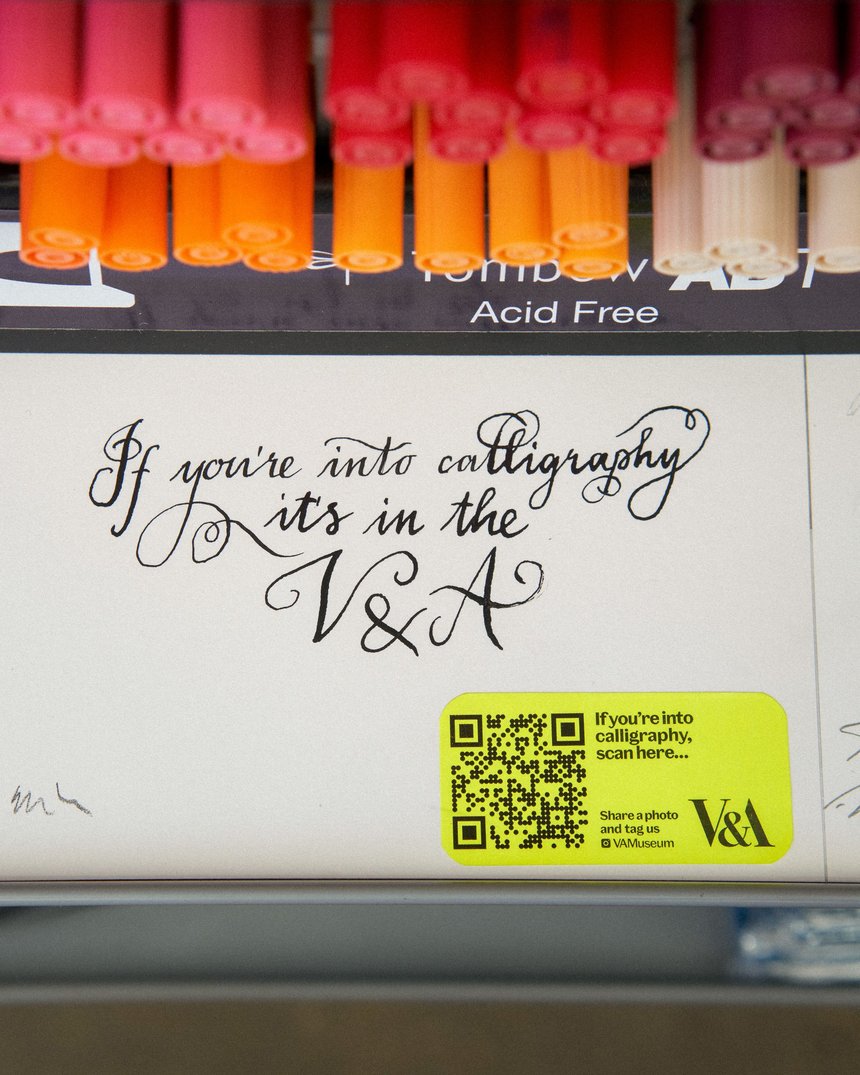 Tombow ABT
Acid Free
If you're into calligraphy
it's in the
V&A
If you're into
calligraphy,
scan here...
Share a photo
and tag us
VAMuseum
V&A